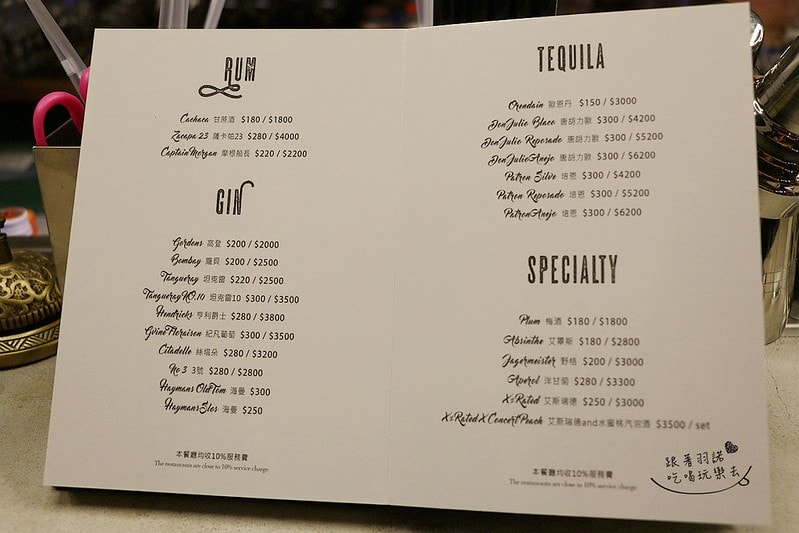 RUM
Cachaca 甘蔗酒 $180 / $1800
Zacapa 23 薩卡帕23 $280 / $4000
Captain Morgan 摩根船長 $220 / $2200
GIN
Gordons 高登 $200 / $2000
Bombay 龐貝 $200 / $2500
Tangueray 坦克雷 $220 / $2500
Tangueray NO.10 坦克雷10 $300 / $3500
Hendricks 亨利爵士 $280 / $3800
Gvine Floraison 紀凡葡萄 $300 / $3500
Citadelle 絲塔朵 $280 / $3200
No 3 3號 $280 / $2800
Haymans Old Tom 海曼 $300
Haymans Slos 海曼 $250
本餐廳均收10%服務費
The restaurants are close to 10% service charge
TEQUILA
Orendain 歐恩丹 $150 / $3000
Don Julio Blaco 唐胡力歐 $300 / $4200
Don Julio Reposado 唐胡力歐 $300 / $5200
Don Julio Anejo 唐胡力歐 $300 / $6200
Patron Silve 培恩 $300 / $4200
Patron Reposado 培恩 $300 / $5200
Patron Anejo 培恩 $300 / $6200
SPECIALTY
Plum 梅酒 $180 / $1800
Absinthe 艾碧斯 $180 / $2800
Jagermeister 野格 $200 / $3000
Aperol 洋甘菊 $280 / $3300
X&Rated 艾斯瑞德 $250 / $3000
X&Rated X Concert Peach 艾斯瑞德and水蜜桃汽泡酒 $3500 / set
本餐廳均收10%服務費
The restaurants are close to 10% service charge
跟著羽諾
吃喝玩樂去